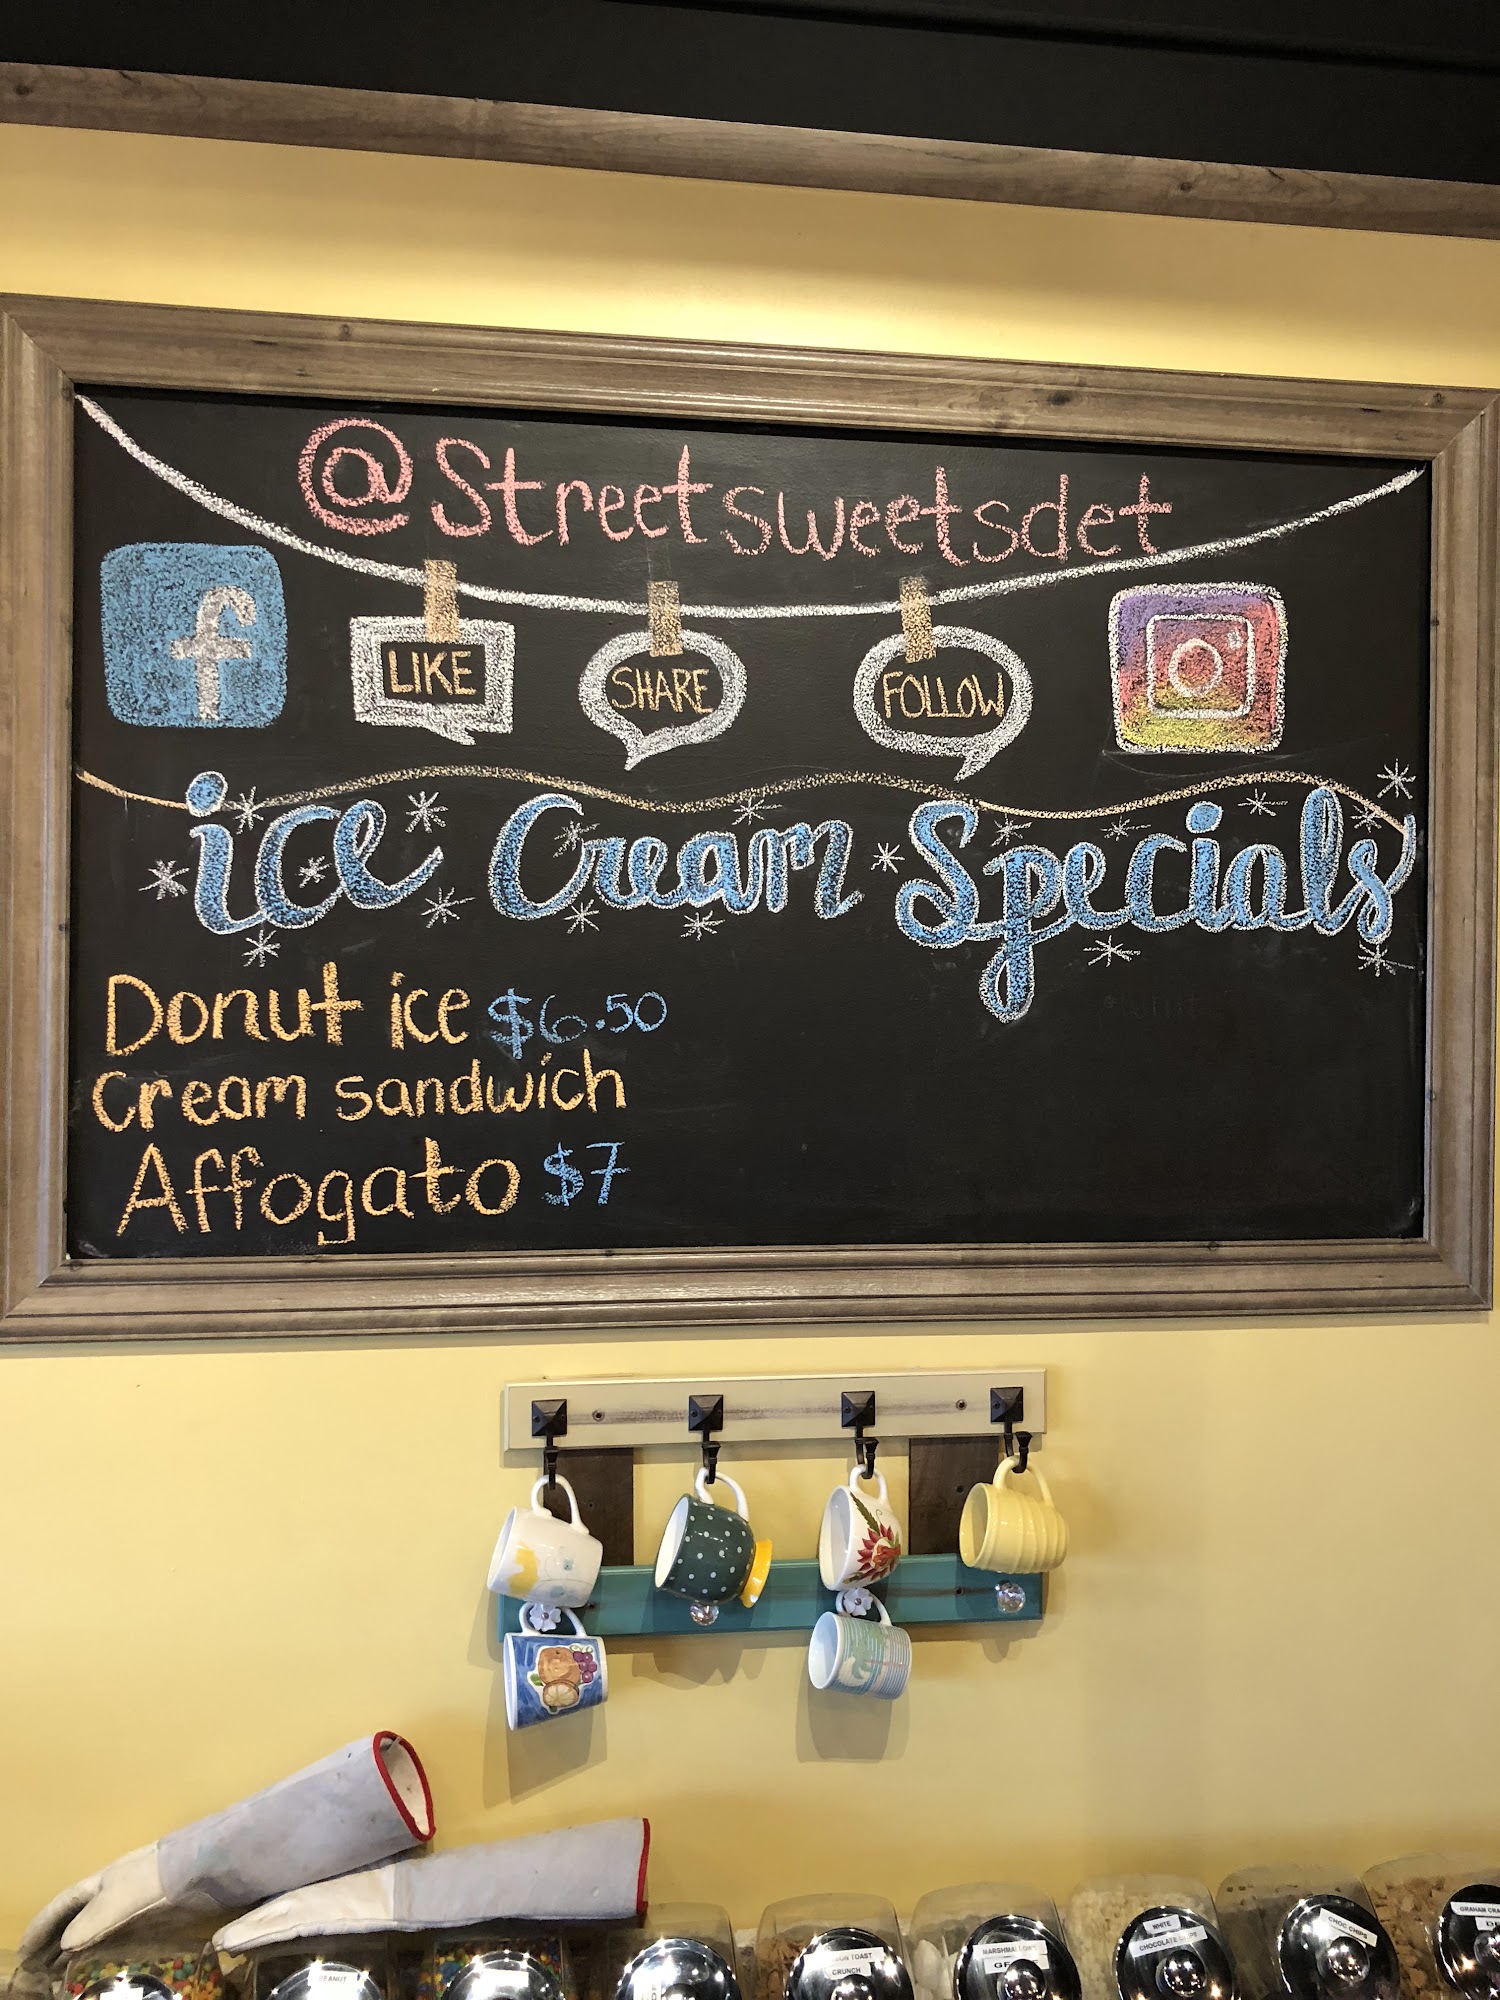 @Streetsweetsdet
f
LIKE SHARE FOLLOW
ice Cream Specials
Donut ice $6.50
Cream sandwich
Affogato $7
PEANUT
TOAST
CRUNCH
MARSHMALLOWS
WHITE
CHOCOLATE CHIPS
CHOC CHIPS
GRAHAM